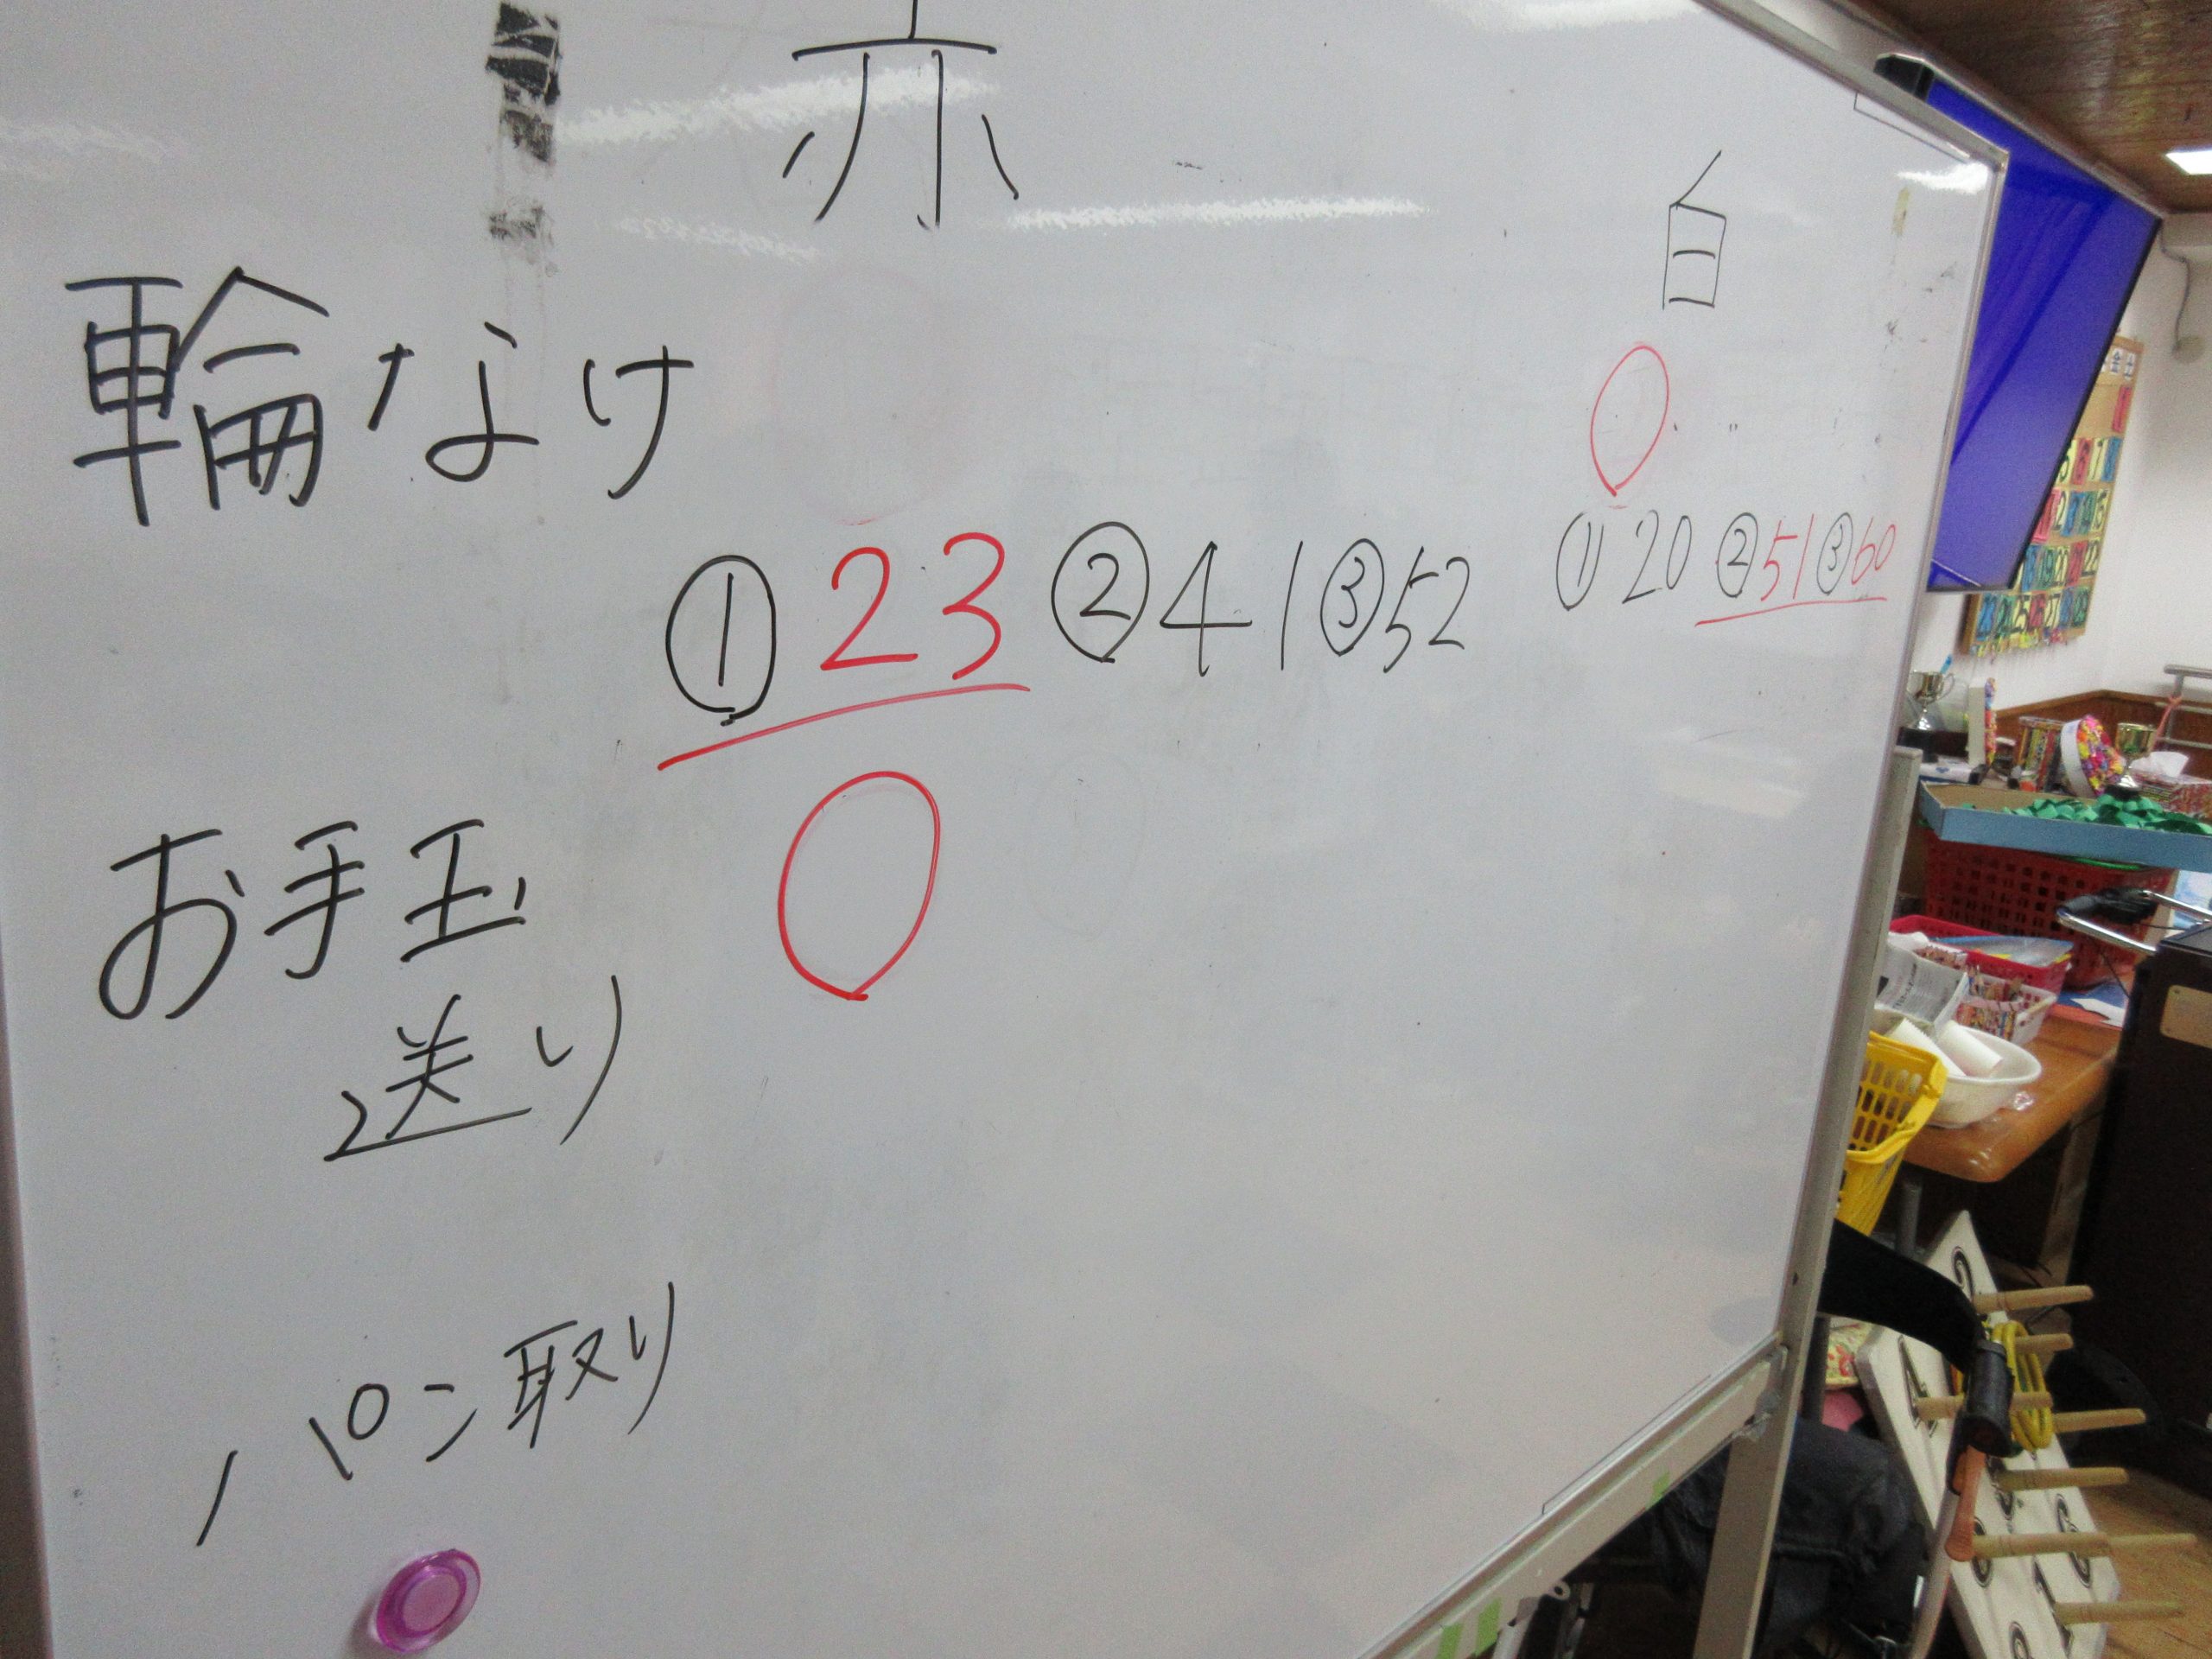 赤
白
輪なけ
① 23 ② 41 ③ 52
① 20 ② 51 ③ 60
お手玉
送り
パン取り